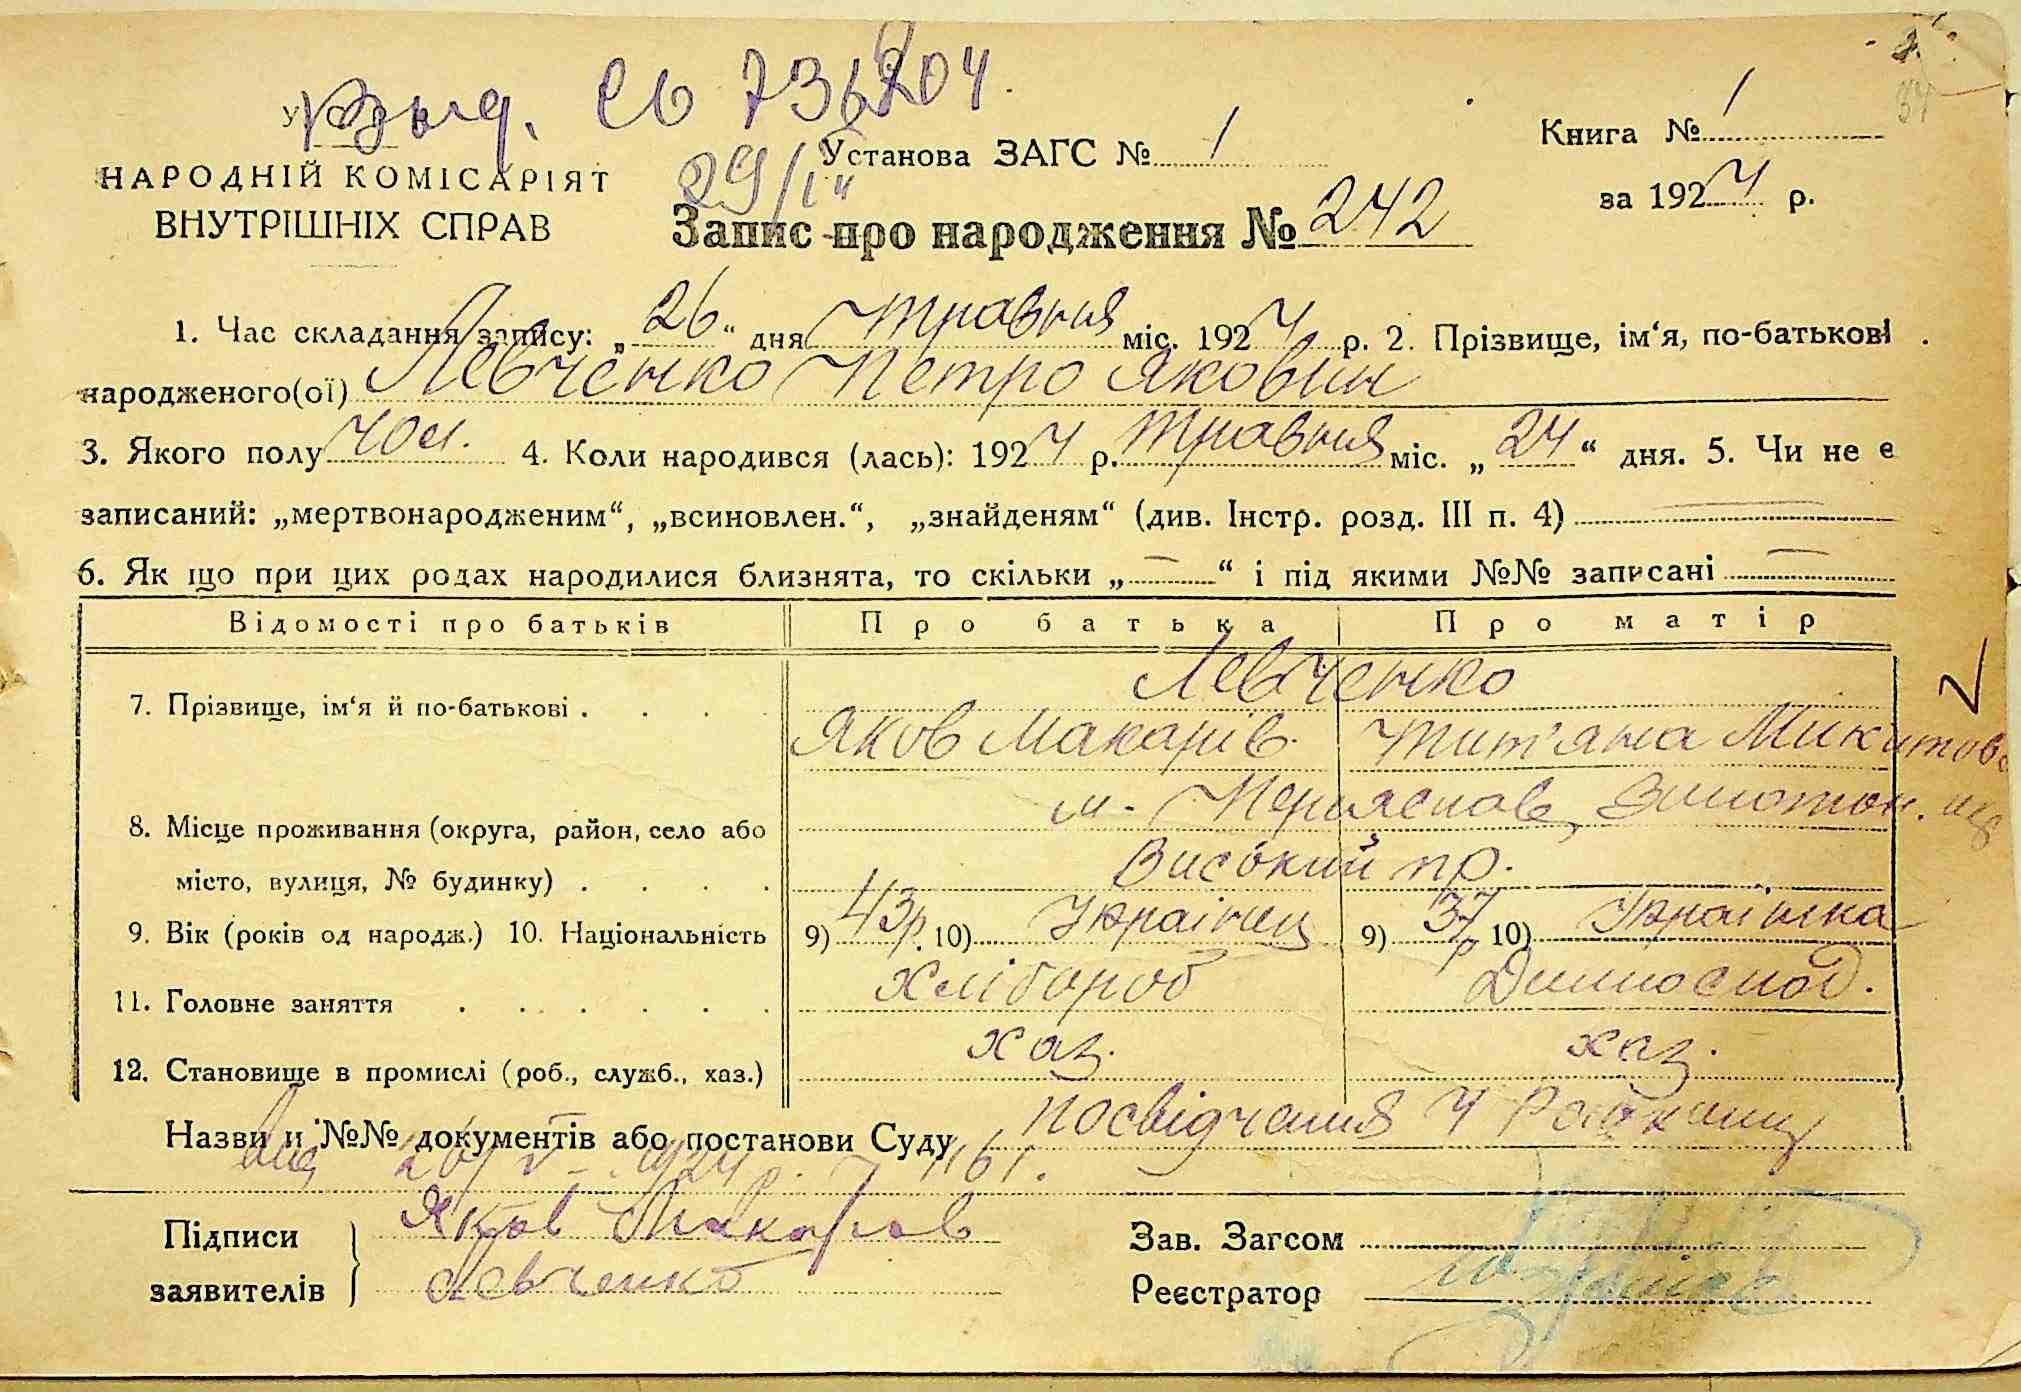 Выд. СЬ 736204
29/IV
У
Установа ЗАГС № 1
Книга № 1
за 1924 р.
НАРОДНІЙ КОМІСАРІЯТ
ВНУТРІШНІХ СПРАВ
Запис про народження № 242
1. Час складання запису: „26“ дня травня міс. 1924 р. 2. Прізвище, ім‘я, по-батькові
народженого(ої) Левченко Петро Яковин
3. Якого полу чол. 4. Коли народився (лась): 1924 р. травня міс. „24“ дня. 5. Чи не є
записаний: „мертвонародженим“, „всиновлен.“, „знайденям“ (див. Інстр. розд. III п. 4) —
6. Як що при цих родах народилися близнята, то скільки „—“ і під якими №№ записані —
Відомості про батьків Про батька Про матір
Левченко
7. Прізвище, ім‘я й по-батькові . . . . Яков Макарів. Тит'яна Микитова
м. Переяслав, Золотон.
8. Місце проживання (округа, район, село або
місто, вулиця, № будинку) . . . . Високий пр.
9. Вік (років од народж.) 10. Національність 9) 43р. 10) Українец 9) 37р 10) Українка
11. Головне заняття . . . . . . Хлібороб Домогоспод.
12. Становище в промислі (роб., служб., хаз.) хаз. хаз.
Назви и №№ документів або постанови Суду посвідчення
26/V 1924 р.
Підписи Яков Макаров
заявителів Левченко
Зав. Загсом
Реєстратор